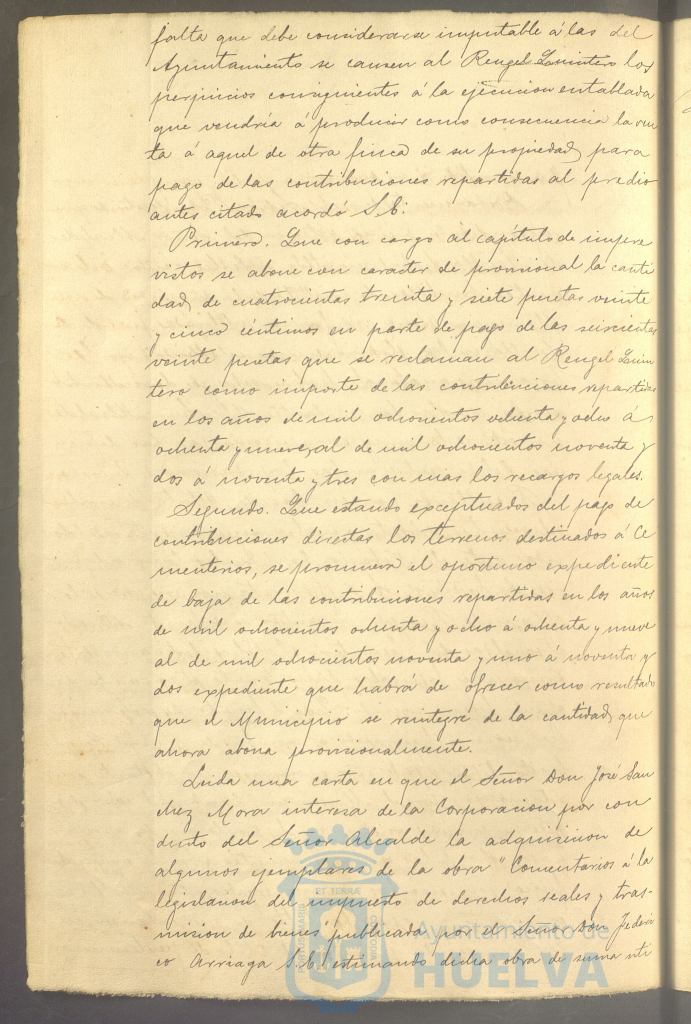 falta que debe considerarse imputable á las del
Ayuntamiento se causen al Rengel Quintero los
perjuicios consiguientes á la ejecucion entablada
que vendría á producir como consecuencia la ven
ta á aquel de otra finca de su propiedad, para
pago de las contribuciones repartidas al predio
antes citado acordó S.E.
Primero. Que con cargo al capítulo de impre
vistos se abone con caracter de provisional la canti
dad, de cuatrocientas treinta y siete pesetas veinte
y cinco céntimos en parte de pago de las seiscientas
veinte pesetas que se reclaman al Rengel Quin
tero como importe de las contribuciones repartidas
en los años de mil ochocientos ochenta y ocho á
ochenta y nueve, al de mil ochocientos noventa y
dos á noventa y tres con mas los recargos legales.
Segundo. Que estando exceptuados del pago de
contribuciones directas los terrenos destinados á Ce
menterios, se promueva el oportuno expediente
de baja de las contribuciones repartidas en los años
de mil ochocientos ochenta y ocho á ochenta y nueve
al de mil ochocientos noventa y uno á noventa y
dos expediente que habrá de ofrecer como resultado
que el Municipio se reintegre de la cantidad, que
ahora abona provisionalmente.
Leida una carta en que el Señor Don José San
chez Mora interesa de la Corporacion por con
ducto del Señor Alcalde la adquisicion de
algunos ejemplares de la obra "Comentarios á la
legislacion del impuesto de derechos reales y tras-
mision de bienes" publicada por el Señor Don Federi
co Arriaga S.E. estimando dicha obra de suma uti
ET TERRÆ
Ayuntamiento de
HUELVA